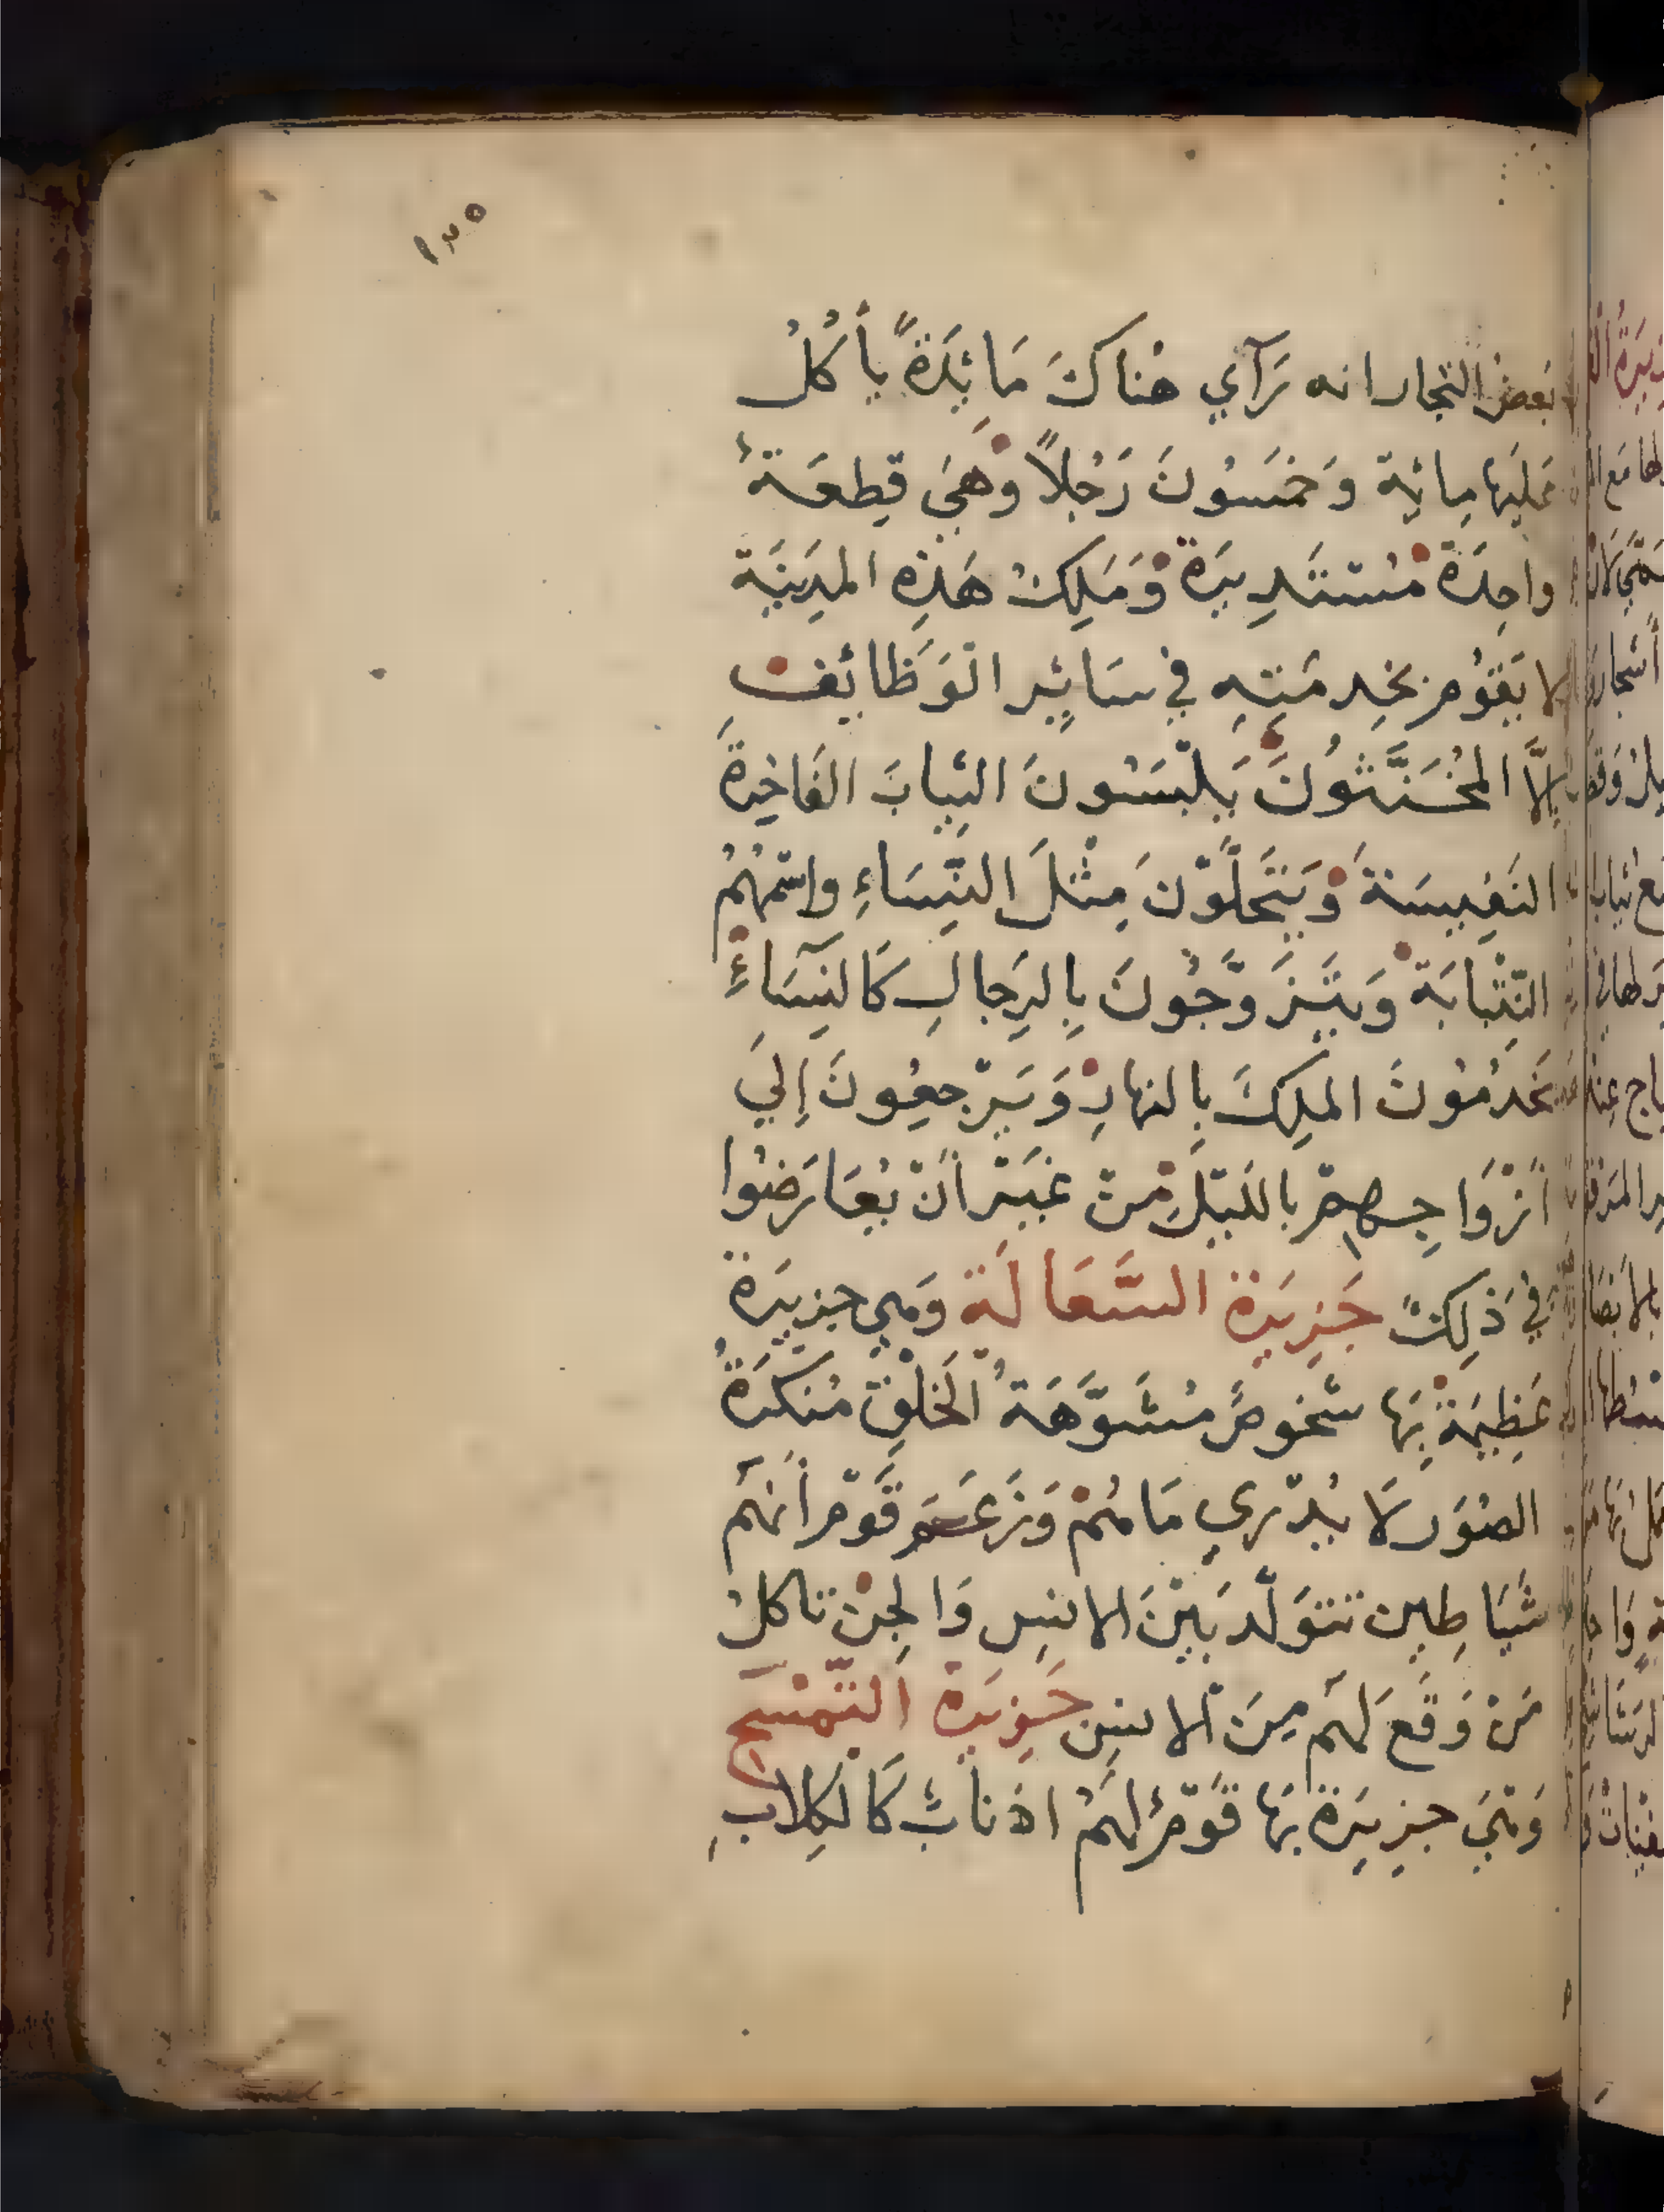 ١٣٥
بَعضُ التجار انه رَآي هُناكَ مَائِدَةً يأكُلُ
عَلَيها مِائِة وَخمَسُونَ رَجُلاً وَهيَ قِطعَةٌ
واحِدَة مُسْتَدِيرَة وَمَلِكُ هَذِه المدِينَة
لا يَقوُم بخِدمَتِهِ في سَائِر الوَظائِف
إلاَّ المخُنَّثوُنَ يَلبَسُونَ الثِيابَ الفَاخِرةَ
النَفِيسَةَ وَيَتَحَلَّوْنَ مِثْلَ النِّسَاءِ واسْمهُمُ
التِّنْبابَة وَيَتَزَوَّجُونَ بِالرِجالِ كَالنِسَآءِ
يَخدُمُونَ الملِكَ بِالنهارِ وَيَرْجِعُونَ إِليَ
أزْوَاجِهِم باللَيْلِ مِنْ غَيْر أنْ يُعَارَضُوا
في ذَلِكَ جَزِيَرة السَّعَالَة وَهي جزيرَة
عَظِيمَة بِهَا شخُوصٌ مُشَوَّهَةُ الخَلْقِ مُنكَرَةُ
الصُوَر لَا يُدْرَي مَا هُمْ وَزَعَمَ قَوْم أنهَم
شَيَاطِين تتوَلّد بَيْنَ الانسِ وَالجِنْ تاكلُ
مَنْ وَقَعَ لهَم مِنَ الانسِ جَزِيَرة التّمْسَح
وَهيَ جزِيَرة بهَا قَوْمٌ لهَمُ اذنابٌ كَالكِلابِ